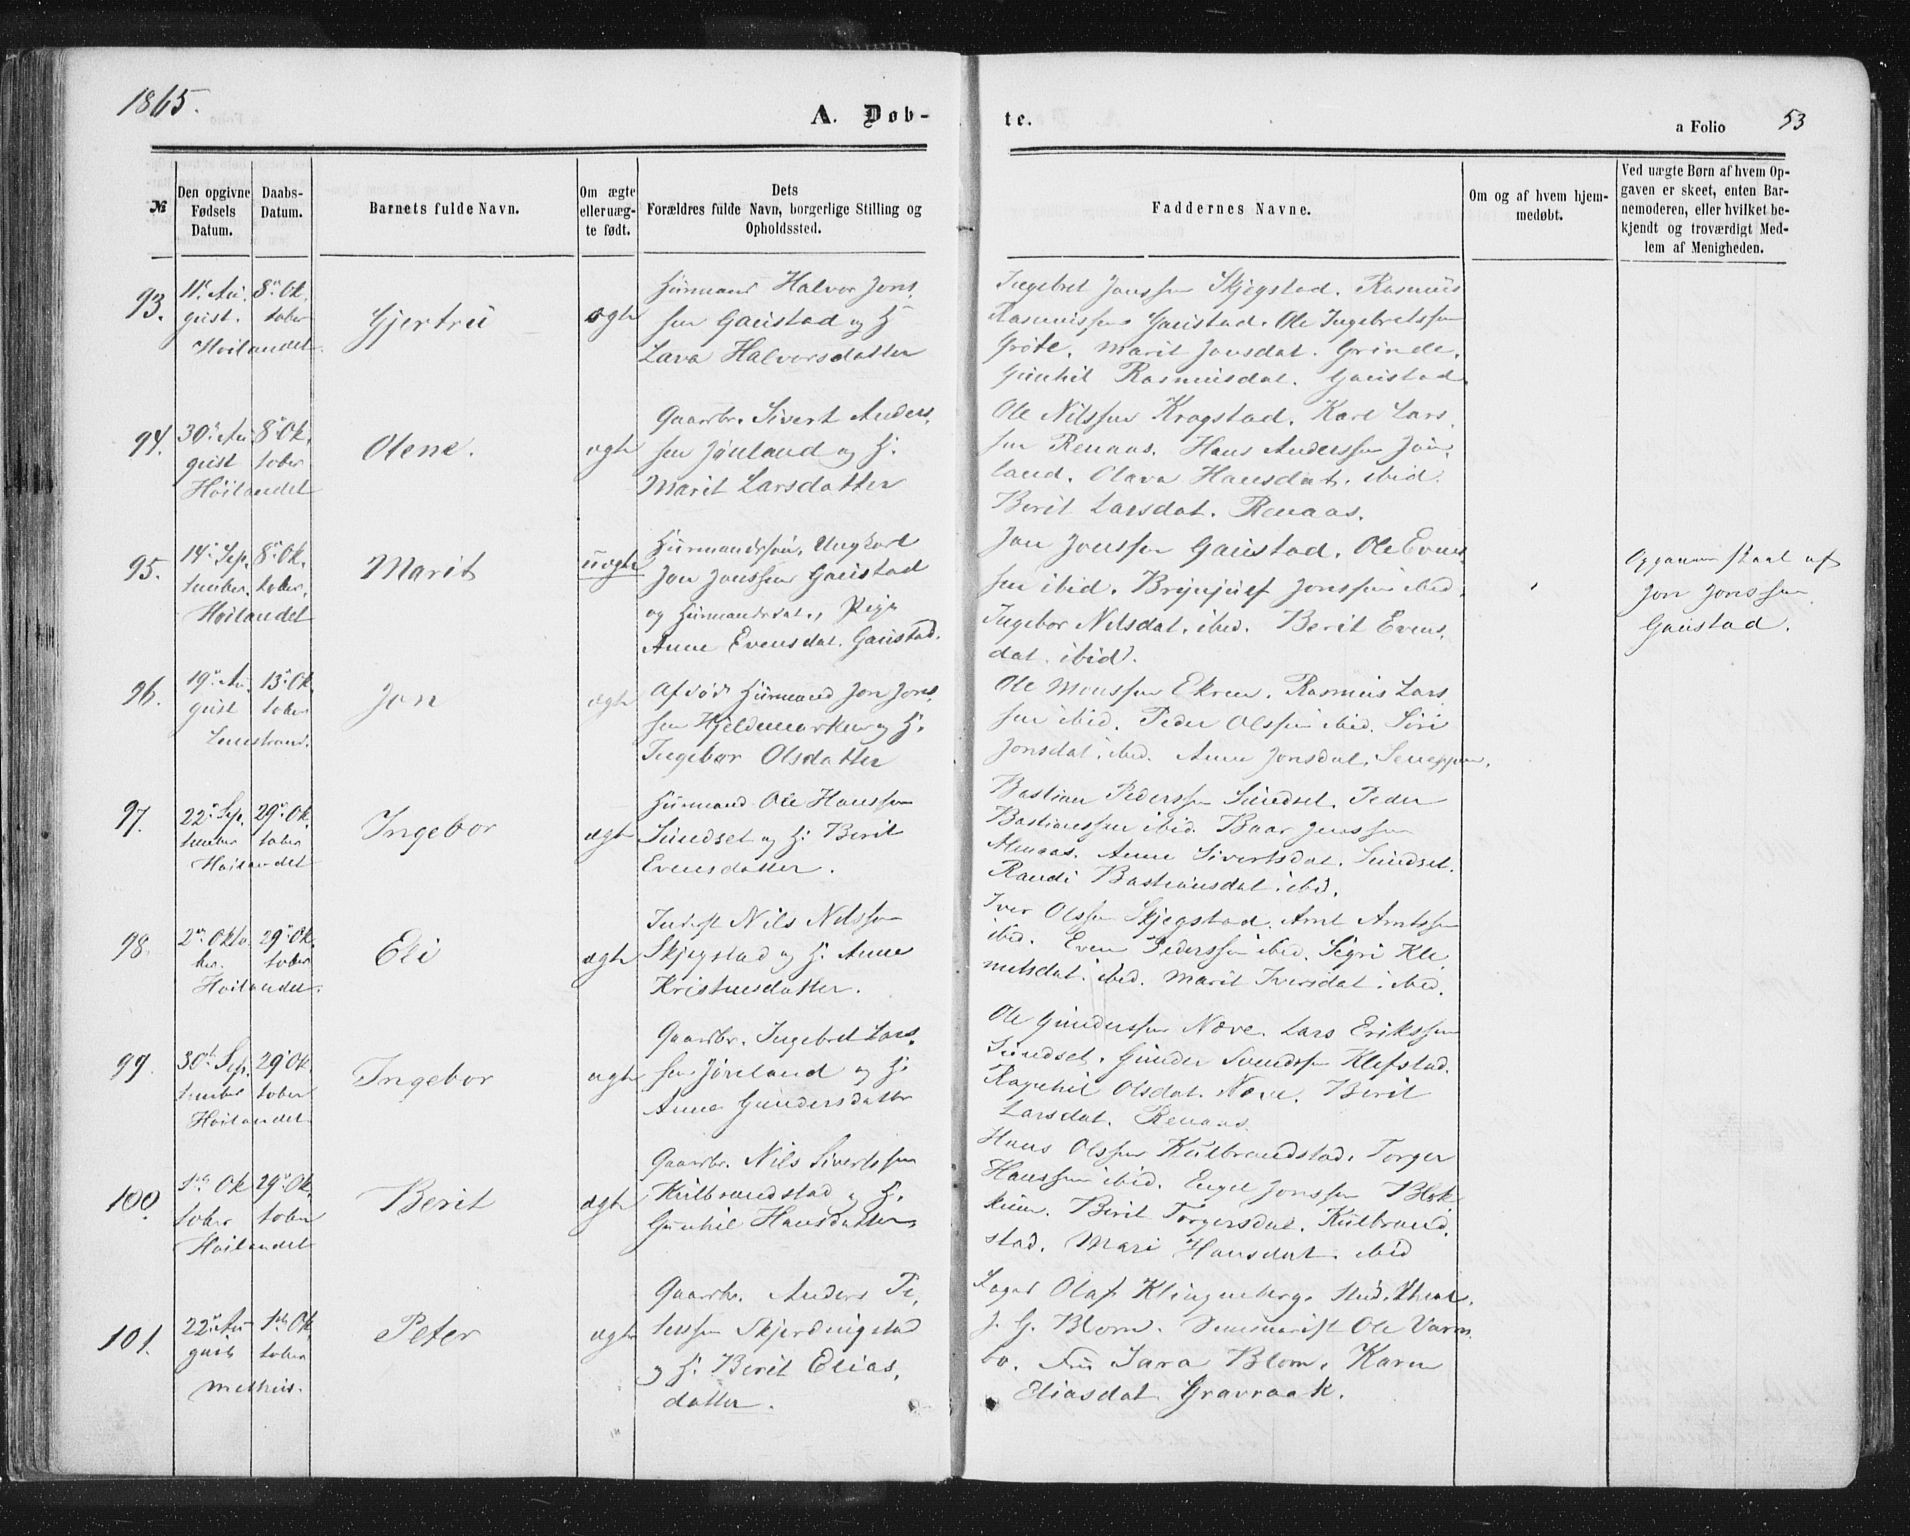 1865.
A. Døb-
te.
a Folio 53
№
Den opgivne Fødsels Datum.
Daabs-Datum.
Barnets fulde Navn.
Om ægte elleruæg-te født.
Dets
Forældres fulde Navn, borgerlige Stilling og
Opholdssted.
Faddernes Navne.
Om og af hvem hjem-
medøbt.
Ved uægte Børn af hvem Op-
gaven er skeet, enten Bar-
nemoderen, eller hvilket be-
kjendt og troværdigt Med-
lem af Menigheden.
93. 11te Au- 8de Ok-
gust. tober
Høilandet.
Gjertru
ægte
Huusmand Halvor Jons-
sen Gaustad og H.
Lava Halvorsdatter
Ingebret Jonssen Skjegstad. Rasmus
Rasmussen Gaustad. Ole Ingebretssen
Grøte. Marit Jonsdat. Grinde.
Gunhil Rasmusdat. Gaustad
94. 30te Au- 8de Ok-
gust tober
Høilandet
Olene.
ægte
Gaardbr. Sivert Anders-
sen Jønland og H.
Marit Larsdatter
Ole Nilssen Krogstad. Karl Lars-
sen Renaas. Hans Anderssen Jøn-
land. Olava Hansdat. ibid.
Berit Larsdat. Renaas.
95. 14de Sep- 8de Ok-
tember. tober.
Høilandet
Marit
uægte
Huusmandssøn, Ungkarl
Jon Jonssen Gaustad
og Huusmandsdat., Pige
Anne Evensdat. Gaustad.
Jon Jonssen Gaustad. Ole Evens-
sen ibid. Brynjulf Jonssen ibid.
Ingebor Nilsdat. ibid. Berit Evens-
dat. ibid.
Opgaven skeet af
Jon Jonssen
Gaustad.
96. 19de Au- 13de Ok-
gust tober
Leerstrand.
Jon
ægte
Afdød Huusmand Jon Jons-
sen Hjeldemarken og H.
Ingebor Olsdatter
Ole Monssen Ekren. Rasmus Lars-
sen ibid. Peder Olssen ibid. Siri
Jonsdat. ibid. Anne Jonsdat.
97. 22de Sep- 29de Ok-
tember tober
Høilandet
Ingebor
ægte
Huusmand Ole Hanssen
Sundset og H. Berit
Evensdatter.
Bastian Pederssen Sundset. Peder
Bastianssen ibid. Baar Jenssen
Anne Sivertsdat. Sundset.
Randi Bastiansdat. ibid.
98. 2den Okto- 29de Ok-
ber. tober
Høilandet.
Eli
ægte
Inderst Nils Nilssen
Skjegstad og H. Anne
Kristensdatter.
Iver Olssen Skjegstad. Arnt Arntssen
ibid. Even Pederssen ibid. Segri Kle-
metsdat. ibid. Marit Iversdat. ibid.
99. 30te Sep- 29de Ok-
tember tober
Høilandet
Ingebor
ægte
Gaardbr. Ingebret Lars-
sen Jønland og H.
Anne Gundersdatter
Ole Gunderssen Nove. Lars Erikssen
Sundset. Gunder Svendssen Klefstad.
Ragnhil Olsdat. Nove. Berit
Larsdat. Renaas.
100. 1ste Ok- 29de Ok-
tober tober
Høilandet
Berit
ægte
Gaardbr. Nils Sivertssen
Kulbrandstad og H.
Gunhil Hansdatter
Hans Olssen Kulbrandstad. Torger
Hanssen ibid. Engel Jonssen Blok-
kum. Berit Torgersdat. Kulbrand-
stad. Mari Hansdat. ibid
101. 22de Au- 1ste Ok-
gust tober
Melhus.
Peter
ægte
Gaardbr. Anders Pe-
terssen Skjerdingstad
og H. Berit Elias-
datter.
Olaf Klingenberg. Stud. theol.
J. G. Blom. Seminarist Ole Varm-
bo. Fru Sara Blom. Karen
Eliasdat. Gravraak.